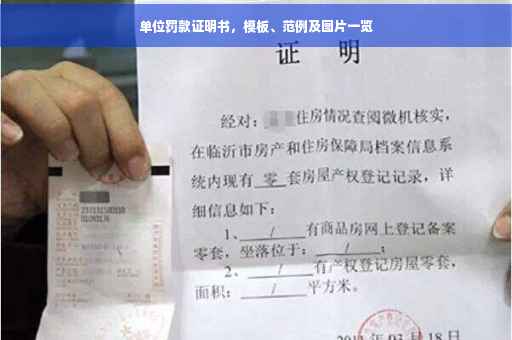 单位罚款证明书，模板、范例及图片一览
证 明
经对：住房情况查阅微机核实，
在临沂市房产和住房保障局档案信息系
统内现有 零 套房屋产权登记记录，详
细信息如下：
1、 / 有商品房网上登记备案
零套，坐落位于： / ；
2、 / 有产权登记房屋零套，
面积： / 平方米。
03月18日